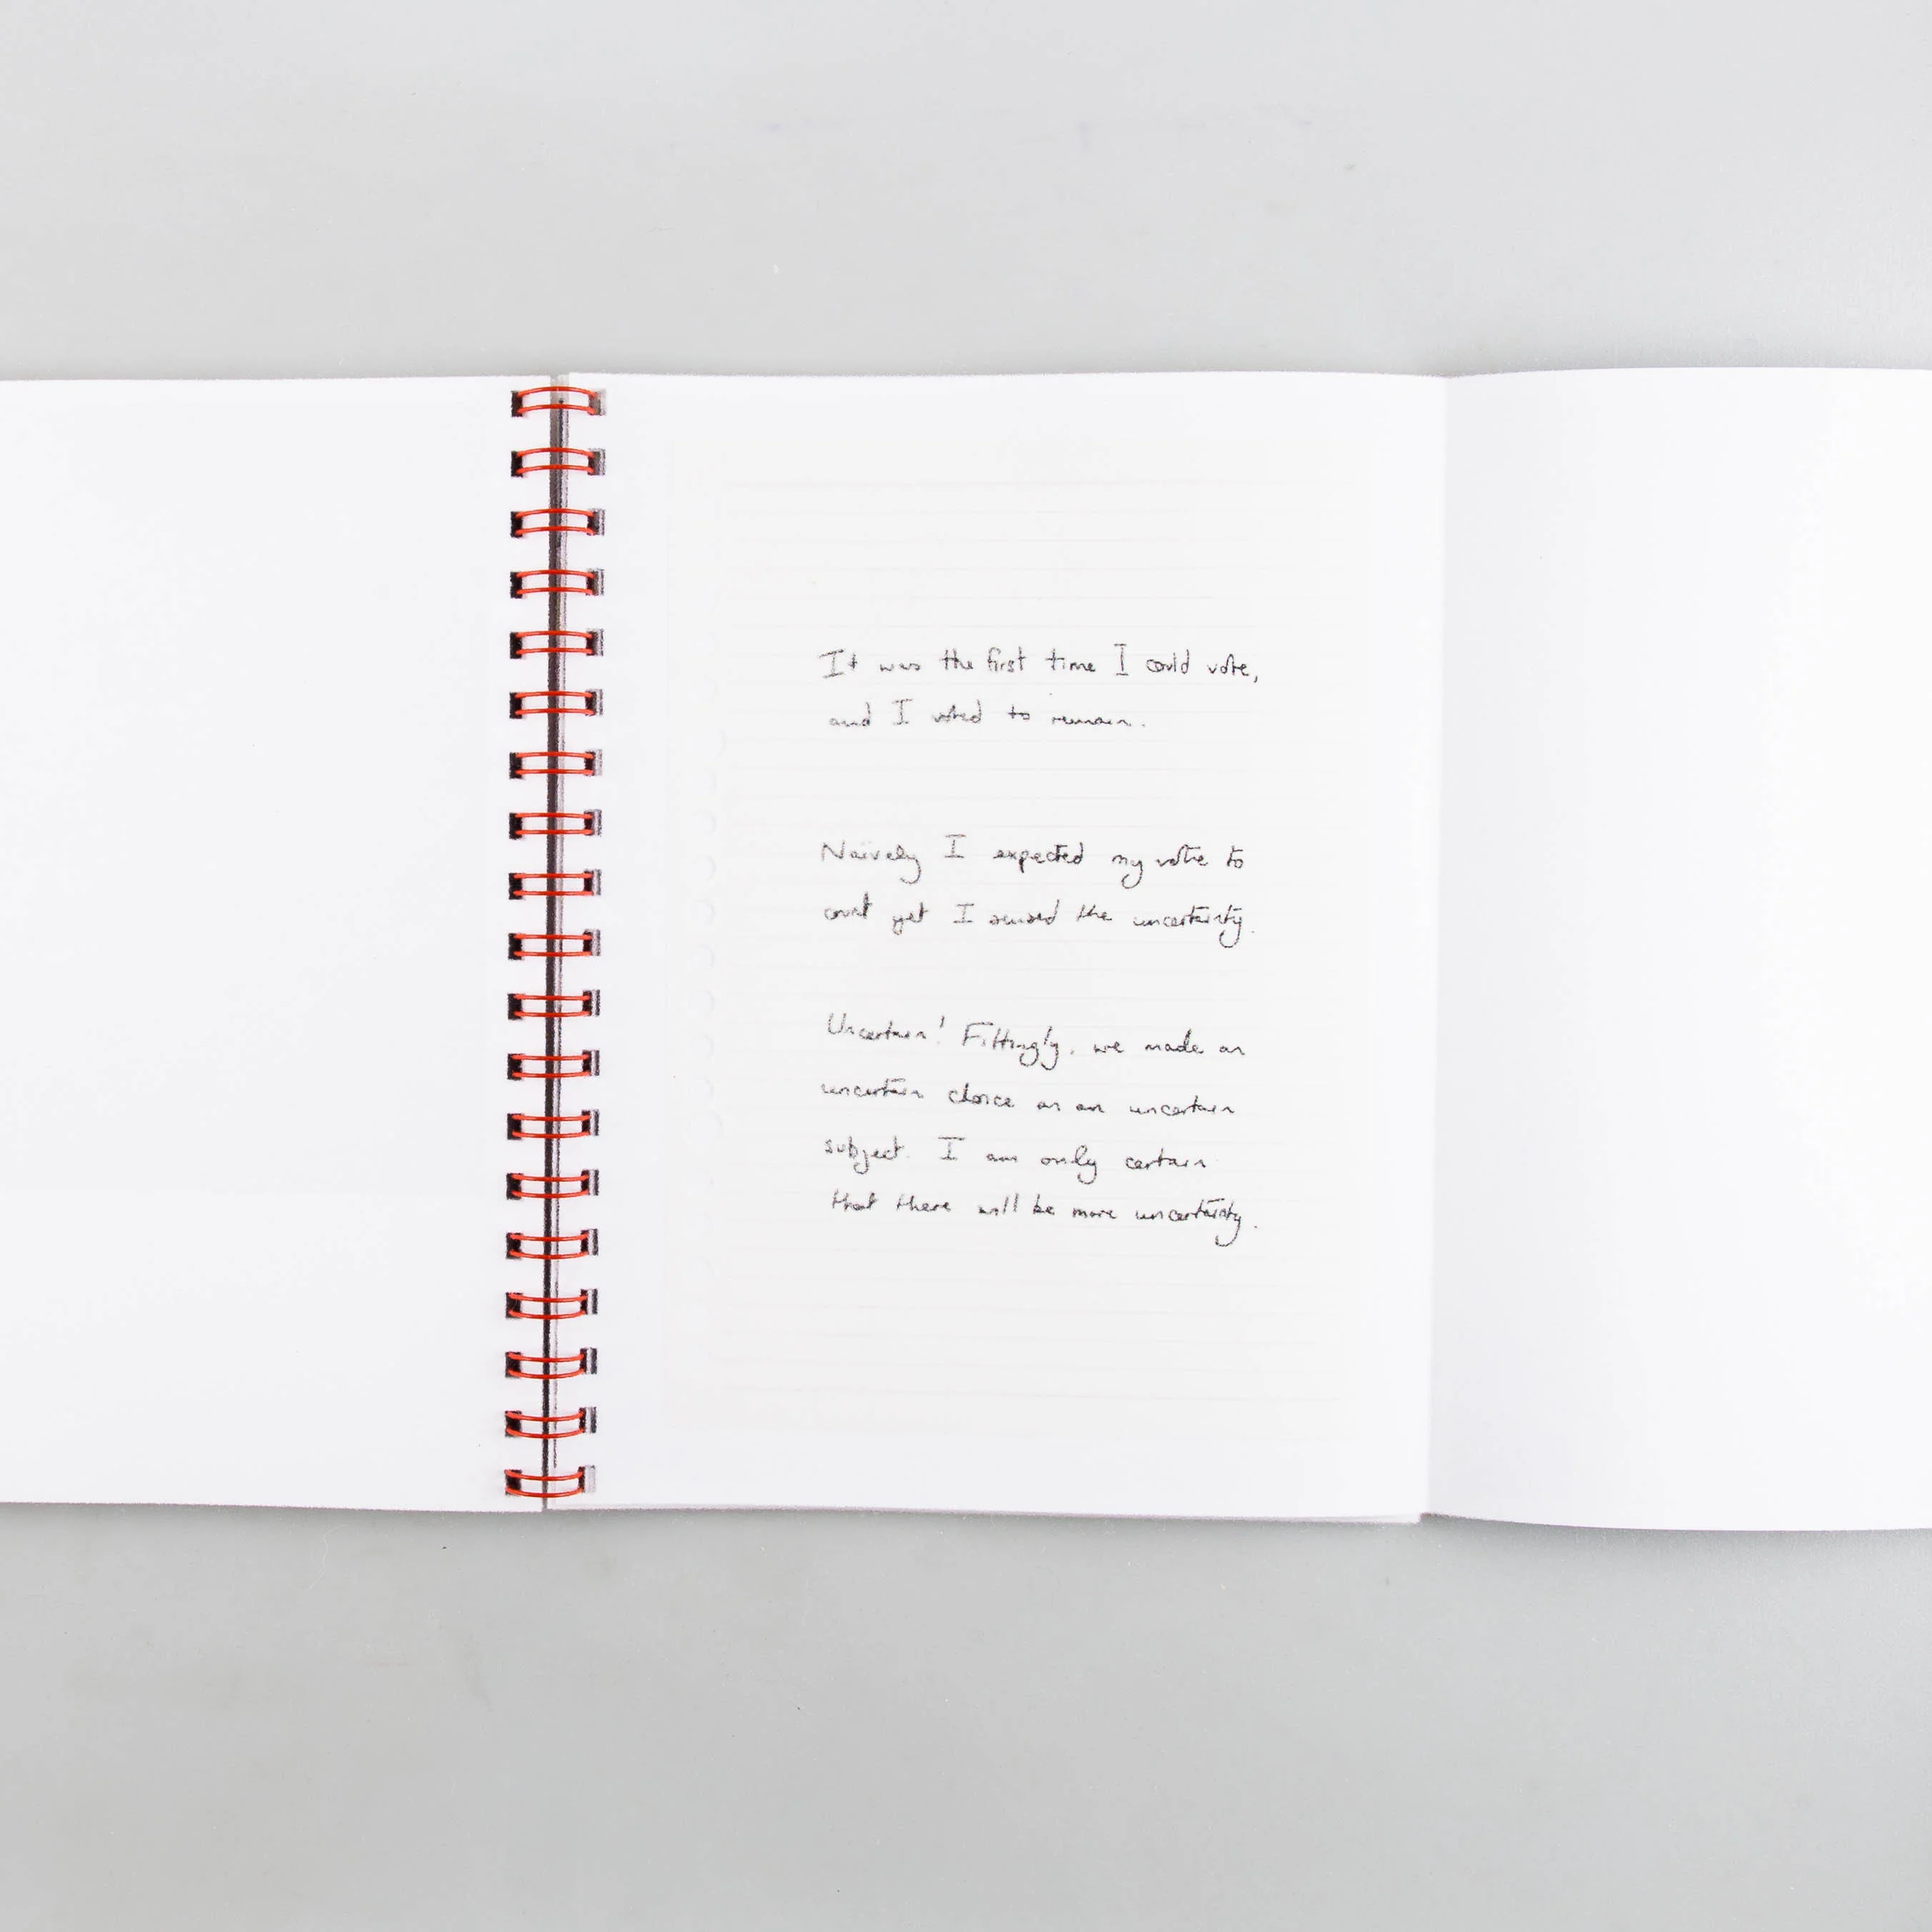 It was the first time I could vote,
and I voted to remain.
Naïvely I expected my vote to
count yet I sensed the uncertainty.
Uncertain! Fittingly, we made an
uncertain choice on an uncertain
subject. I am only certain
that there will be more uncertainty.